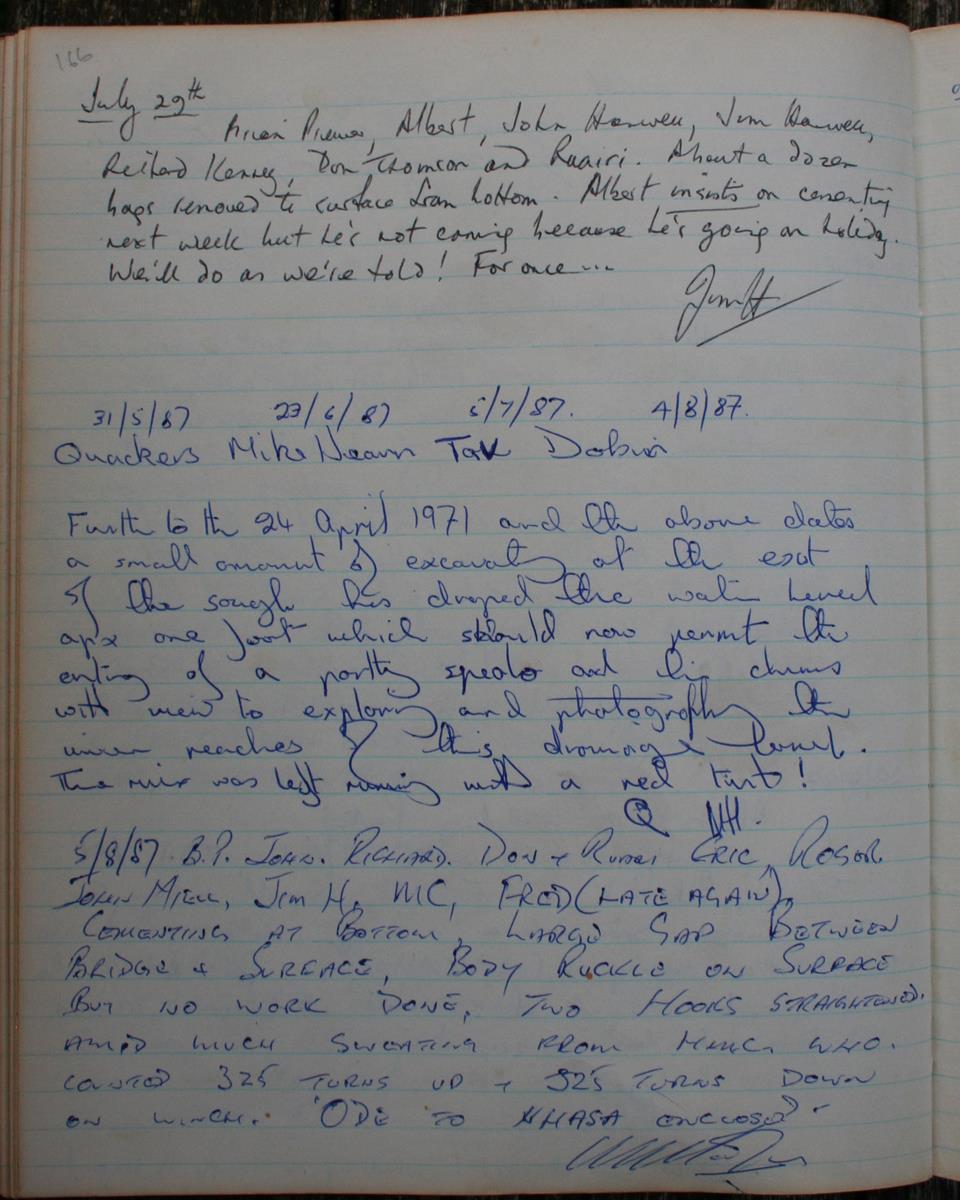 166
July 29th
Albert, John Harwell, Jim Harwell,
Richard Kenney, Don Thomson and Ruairi. About a dozen
bags removed to surface from bottom. Albert insists on cementing
next week but he's not coming because he's going on holiday.
We'll do as we're told! For once...
Jim H
31/5/87 23/6/87 5/7/87. 4/8/87.
Quackers Mike Nearn Dobin
Further to the 24 April 1971 and the above dates
a small amount of excavating at the exit
of the sough has droped the water level
apx one foot which should now permit the
entry of a portly speleo and his chums
with view to exploring and photography the
inner reaches of this drainage tunnel.
The river was left running with a red tint!
Q NH.
5/8/87 B.P. JOHN. RICHARD. DON + ERIC, ROGER
JOHN Jim H, MC, FRED (LATE AGAIN),
CEMENTING AT BOTTOM, LARGE GAP BETWEEN
BRIDGE + SURFACE, BODY RUCKLE ON SURFACE
BUT NO WORK DONE, TWO HOOKS STRAIGHTENED.
AMID MUCH SWEATING FROM WHO.
COUNTED 325 TURNS UP + 325 TURNS DOWN
ON WINCH. 'ODE TO ENCLOSED'